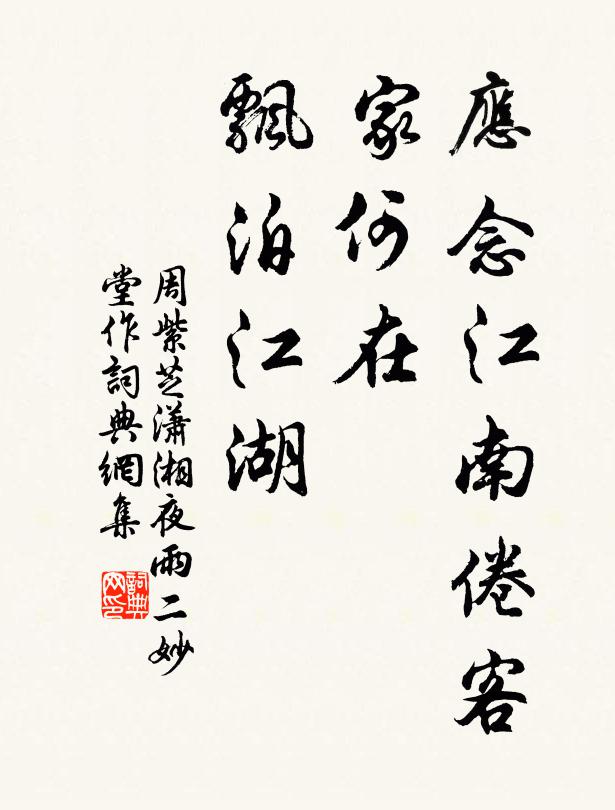 應念江南倦客
家何在
飄泊江湖
周紫芝瀟湘夜雨二妙
堂作詞典網集
詞典网印